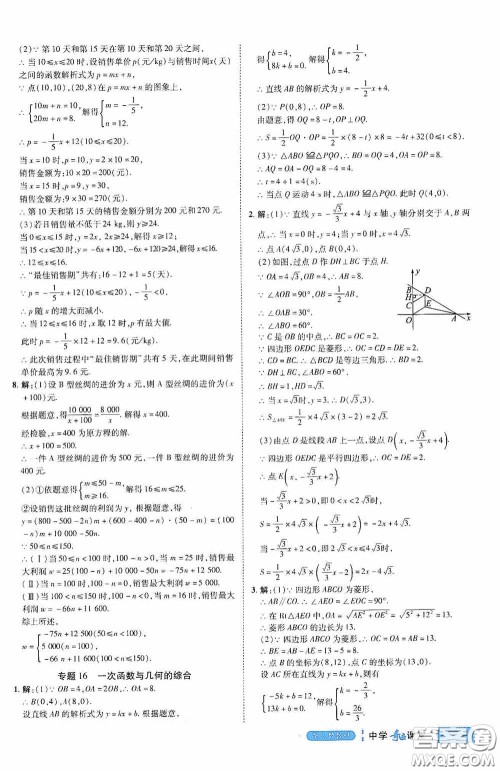 (2)∵第10天和第15天在第10天和第20天之间,
∴当10≤x≤20时,设销售单价p(元/kg)与销售时间x(天)
之间的函数解析式为p=mx+n,
∵点(10,10),(20,8)在p=mx+n的图象上,
∴{10m+n=10, 20m+n=8, 解得{m=-1/5, n=12.
∴p=-1/5x+12(10≤x≤20).
当x=10时,p=10,y=2×10=20,
销售金额为:10×20=200(元).
当x=15时,p=-1/5×15+12=9,y=30,
销售金额为:9×30=270(元).
∴第10天和第15天的销售金额分别为200元和270元.
(3)若日销售量不低于24 kg,则y≥24.
当0≤x≤15时,y=2x, 2x≥24,解得x≥12.
当15<x≤20时,y=-6x+120,-6x+120≥24,解得x≤16.
∴12≤x≤16.
∴“最佳销售期”共有:16-12+1=5(天).
∵p=-1/5x+12(10≤x≤20),-1/5<0,
∴p随x的增大而减小.
∴当12≤x≤16时,x取12时,p有最大值.
此时p=-1/5×12+12=9.6(元).
∴此次销售过程中“最佳销售期”共有5天,在此期间销售
单价最高为9.6元.
8. 解:(1)设B型丝绸的进价为x元,则A型丝绸的进价为(x
+100)元.
根据题意,得10 000/(x+100)=8 000/x.解得x=400.
经检验,x=400为原方程的解.
∴x+100=500.
∴一件A型丝绸的进价为500元,一件B型丝绸的进价为
400元.
(2)①依题意得{m≤50-m, m≥16. 解得16≤m≤25.
②设销售这批丝绸的利润为y,根据题意,得
y=(800-500-2n)m+(600-400-n)·(50-m)=(100
-n)m+(10 000-50n).
∵50≤n≤150,
∴(Ⅰ)当50≤n<100时,100-n>0,当m=25时,销售最
大利润w=25(100-n)+10 000-50n=-75n+12 500.
(Ⅱ)当n=100时,100-n=0,销售最大利润w=5 000.
(Ⅲ)当100<n≤150时,100-n<0,当m=16时,销售最
大利润w=-66n+11 600.
综上所述,
w={-75n+12 500(50≤n<100), 5 000(n=100), -66n+11 600(100<n≤150).
专题16 一次函数与几何的综合
1. 解:(1)∵OB=4,OA=2OB,∴OA=8.
∴B(0,4),A(8,0).
设直线AB的解析式为y=kx+b.根据题意,
得{b=4, 8k+b=0. 解得{k=-1/2, b=4.
∴直线AB的解析式为y=-1/2x+4.
(2)∵P(0,8),∴OP=8.
由题意,得OQ=8-t,OP⊥OQ.
∴S=1/2OQ·OP=1/2(8-t)×8=-4t+32(0≤t<8).
(3)∵△ABO≌△PQO,∴BO=OQ=4,OA=OP=8.
∴AQ=OA-OQ=8-4=4.
∴t=4÷1=4(s).
∴当点Q运动4 s时,△ABO≌△PQO.此时Q(4,0).
2. 解:(1)∵直线y=-√3/3x+4与x轴、y轴分别交于A,B两
点,∴当x=0时,y=4;当y=0时,x=4√3.
∴点A(4√3,0),B(0,4).
(2)如图,过点D作DH⊥BC于点H.
∵OA=4√3,OB=4,
∵∠AOB=90°,∴OB=1/2AB.
∴∠OAB=30°.
∴∠OBA=60°.
∵C是OB的中点,∴OC=CB=2.
∵四边形OEDC是菱形,∴OC=CD=DE=2.
∴CD=BC.∴△BCD是等边三角形.
∵DH⊥BC,∠ABC=60°,
∴BH=1,HD=√3.
∴当x=√3时,y=3.∴D(√3,3).
∴S△AOD=1/2×4√3×(3-2)=2√3.
(3)由点D是线段AB上一点,设点D(x,-√3/3x+4).
∵四边形OEDC是平行四边形,∴OC=DE=2.
∴点E(x,-√3/3x+2).
当-√3/3x+2>0,即0<x<2√3时,
S=1/2×4√3×(-√3/3x+2)=-2x+4√3.
当-√3/3x+2<0,即2√3<x<4√3时,
S=1/2×4√3×(√3/3x-2)=2x-4√3.
3. 解:(1)∵四边形ABCO为菱形,
∴AB∥CO.∴∠AEO=90°.
∴在Rt△AEO中,OA=√(AE²+OE²)=√(5²+12²)=13.
∴菱形ABCO的边长为13.
(2)∵四边形ABCO为菱形,∴OC=OA=AB=13.
∴点B的坐标为(8,12),点C的坐标为(13,0).
设AC所在直线为y=kx+b.
∴{-5k+b=12, 13k+b=0. 解得{k=-2/3, b=26/3.